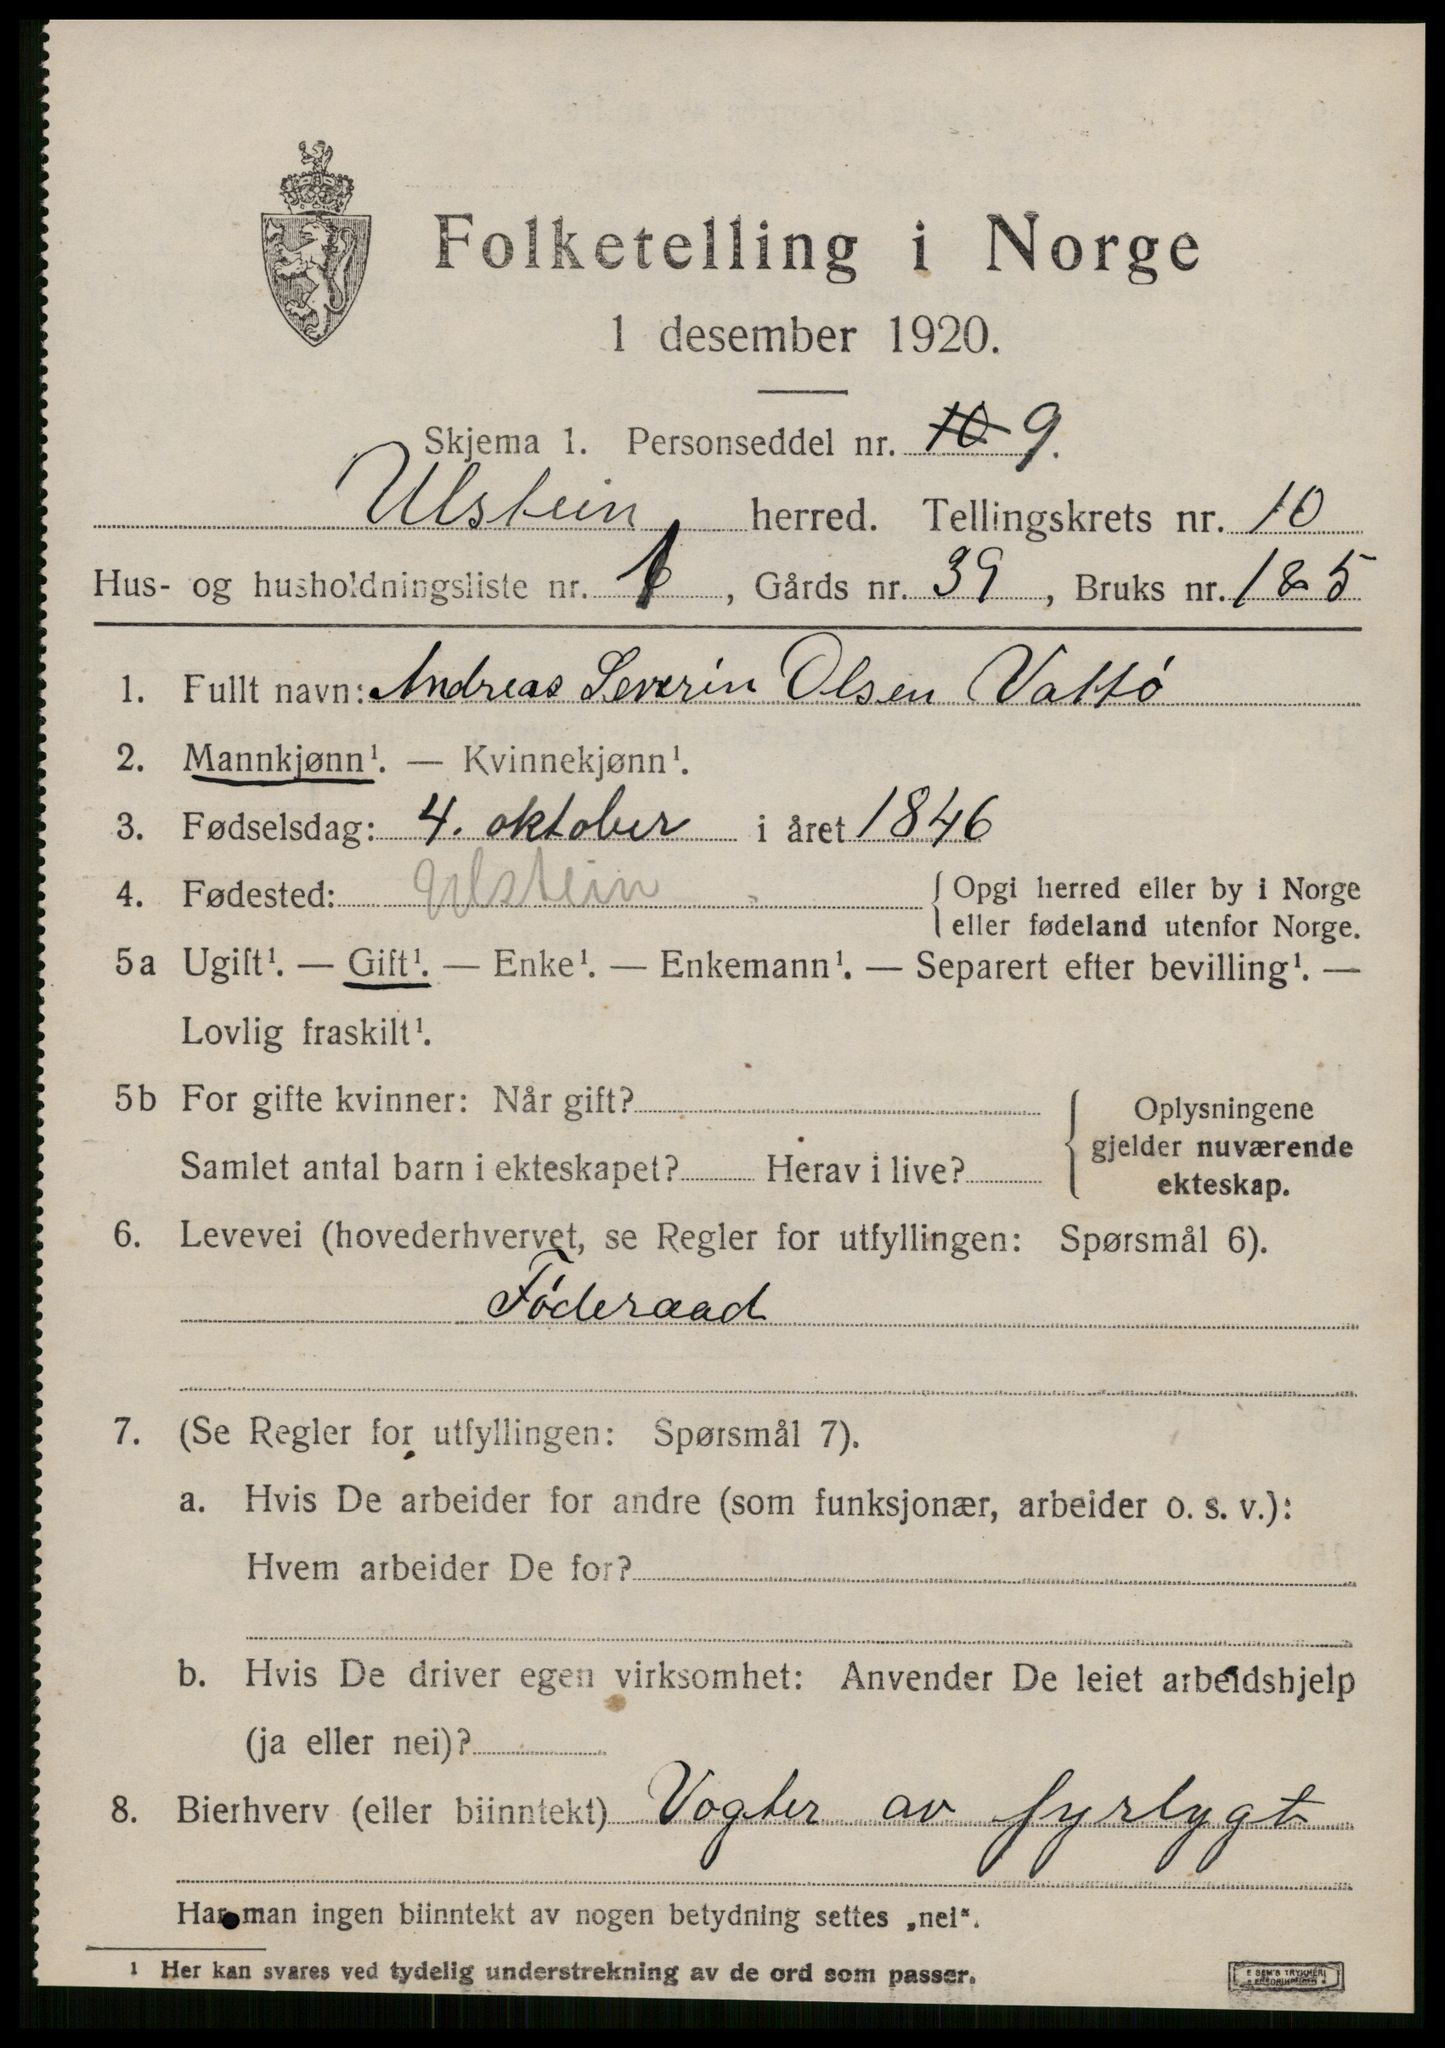 Folketelling i Norge
1 desember 1920.
Skjema 1. Personseddel nr. 10 9.
Ulstein herred. Tellingskrets nr. 10
Hus- og husholdningsliste nr. 1, Gårds nr. 39, Bruks nr. 1 & 5
1. Fullt navn: Andreas Severin Olsen Vattö
2. Mannkjønn¹. — Kvinnekjønn¹.
3. Fødselsdag: 4. oktober i året 1846
4. Fødested: Ulstein { Opgi herred eller by i Norge
eller fødeland utenfor Norge.
5a Ugift¹. — Gift¹. — Enke¹. — Enkemann¹. — Separert efter bevilling¹. —
Lovlig fraskilt¹.
5b For gifte kvinner: Når gift?
Samlet antal barn i ekteskapet? Herav i live?
{ Oplysningene
gjelder nuværende
ekteskap.
6. Levevei (hovederhvervet, se Regler for utfyllingen: Spørsmål 6).
Föderaad
7. (Se Regler for utfyllingen: Spørsmål 7).
a. Hvis De arbeider for andre (som funksjonær, arbeider o. s. v.):
Hvem arbeider De for?
b. Hvis De driver egen virksomhet: Anvender De leiet arbeidshjelp
(ja eller nei)?
8. Bierhverv (eller biinntekt) Vogter av fyrlygt
Har man ingen biinntekt av nogen betydning settes „nei".
¹ Her kan svares ved tydelig understrekning av de ord som passer.